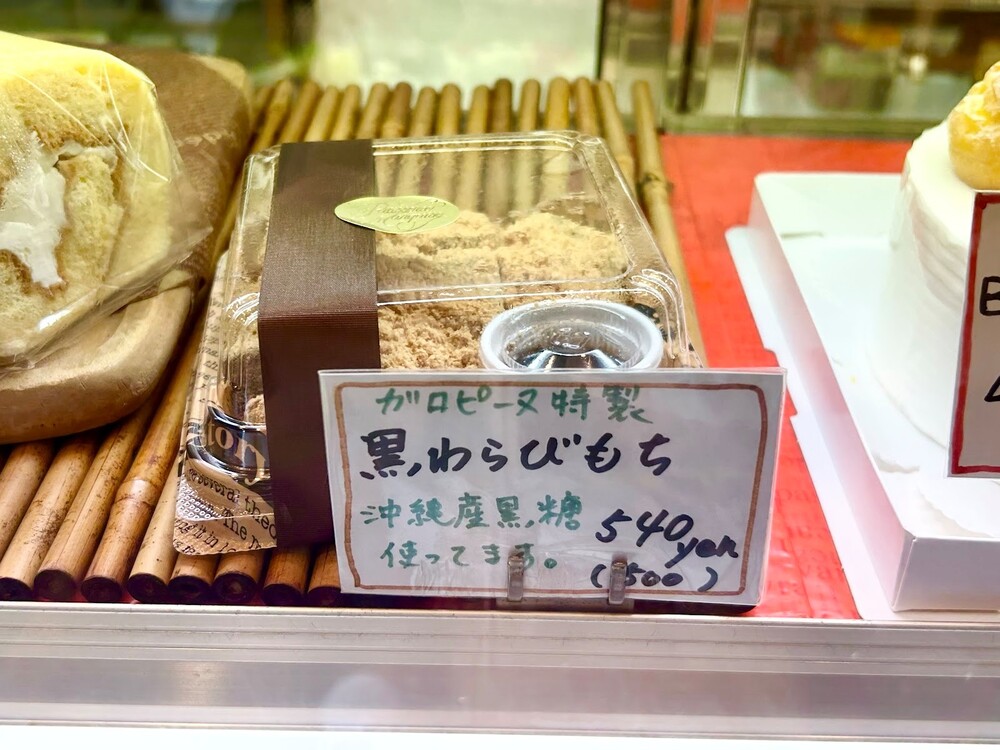 ガロピーヌ特製
黒わらびもち
沖縄産黒糖
使ってます。
540yen
(500)